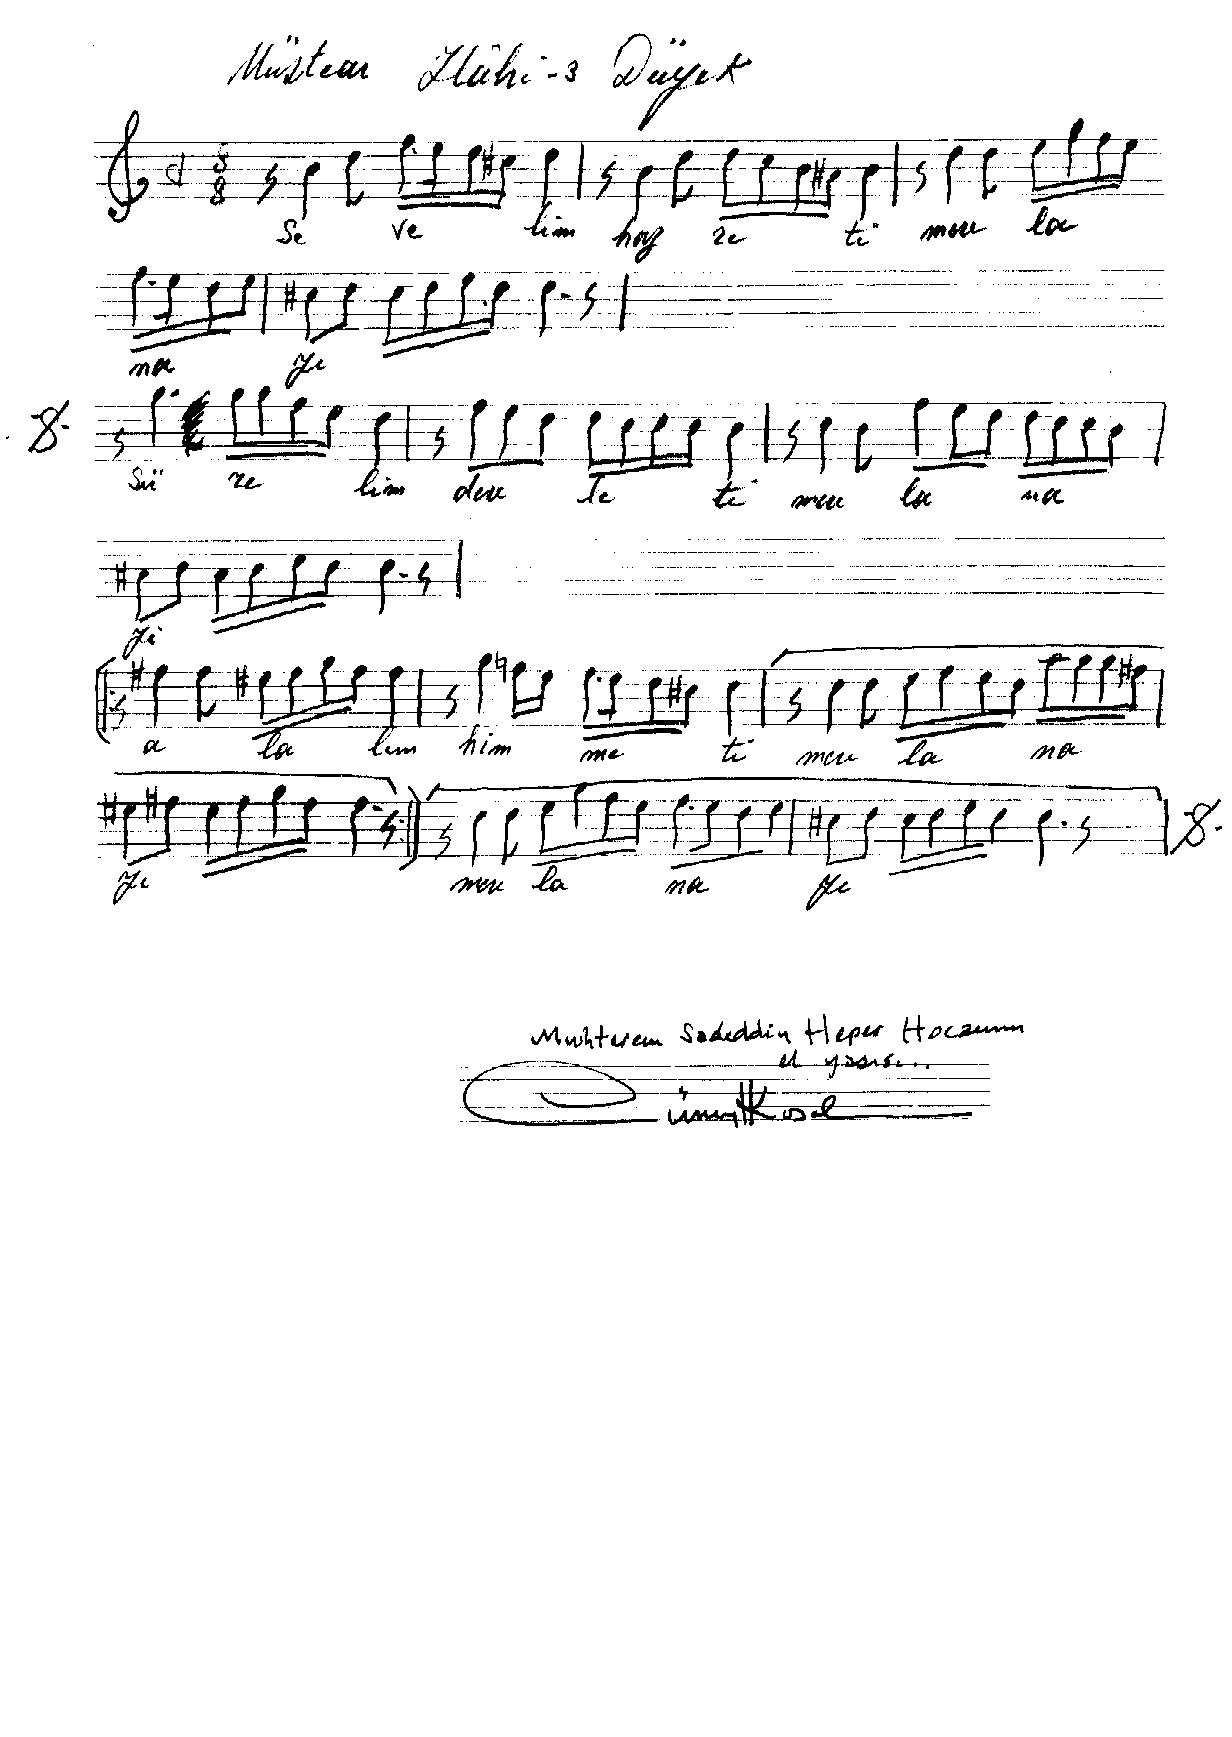 Müstear İlâhi-3 Düyek
8
8
Se ve lim haz re ti mev la
na yi
Sü re lim dev le ti mev la na
yi
a la lım him me ti mev la na
yi mev la na yi
Muhterem Sadeddin Heper Hocamın
el yazısı...
Cüneyt Kosal